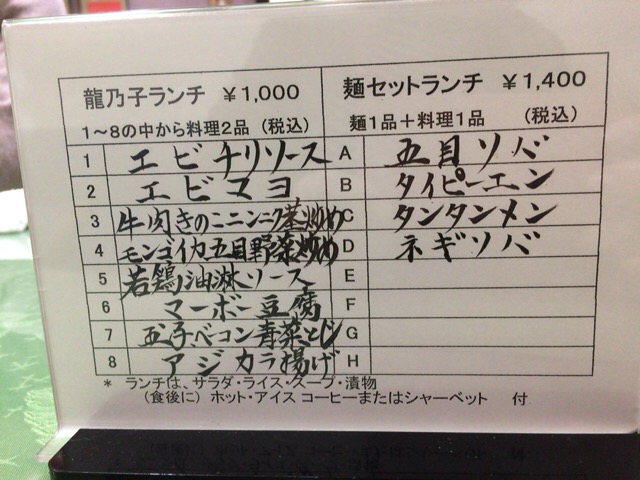 龍乃子ランチ ￥1,000
1～8の中から料理2品 (税込)
麺セットランチ ￥1,400
麺1品＋料理1品 (税込)
1 エビチリソース
2 エビマヨ
3 牛肉きのこニンニク茎炒め
4 モンゴイカ五目野菜炒め
5 若鶏油淋ソース
6 マーボー豆腐
7 玉子ベーコン青菜とじ
8 アジカラ揚げ
A 五目ソバ
B タイピーエン
C タンタンメン
D ネギソバ
E
F
G
H
* ランチは、サラダ・ライス・スープ・漬物
(食後に) ホット・アイス コーヒーまたはシャーベット 付